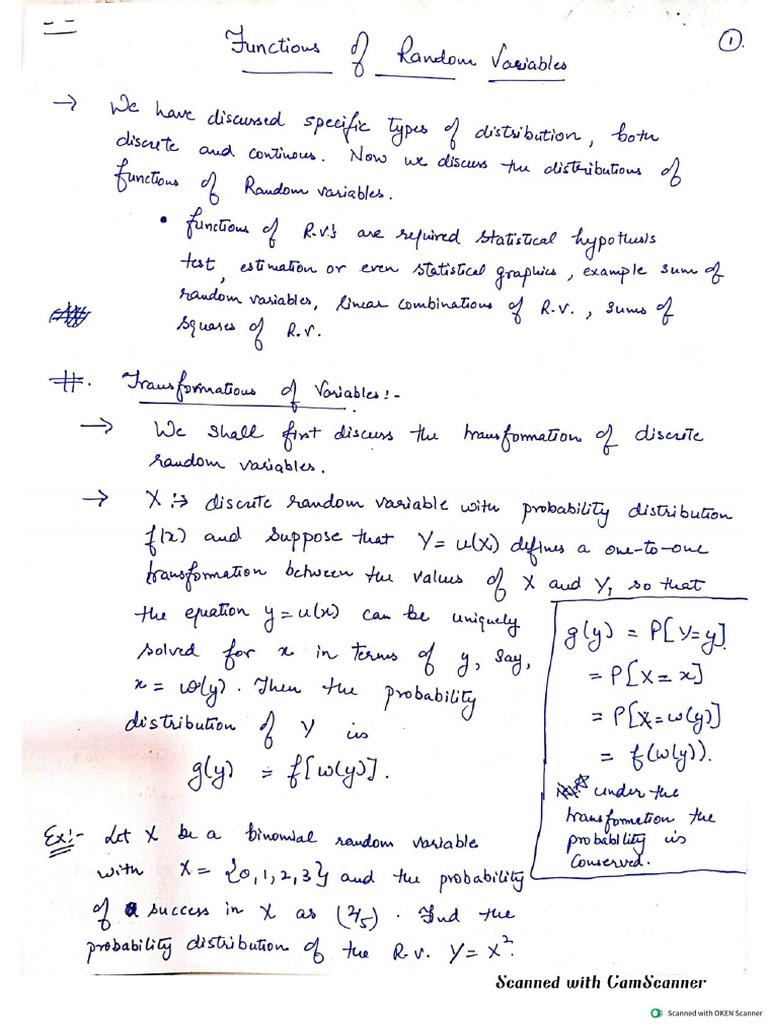 Functions of Random Variables
①
→ We have discussed specific types of distribution, both
discrete and continous. Now we discuss the distributions of
functions of Random variables.
• functions of R.V.'s are required statistical hypothesis
test, estimation or even statistical graphics, example sum of
random variables, linear combinations of R.V., sums of
squares of R.V.
#. Transformations of Variables:-
→ We shall first discuss the transformation of discrete
random variables.
→ X :→ discrete random variable with probability distribution
f(x) and suppose that Y = u(X) defines a one-to-one
transformation between the values of X and Y, so that
the equation y = u(x) can be uniquely
solved for x in terms of y, say,
x = w(y). Then the probability
distribution of Y is
g(y) = f[w(y)].
g(y) = P[Y=y]
= P[X = x]
= P[X = w(y)]
= f(w(y)).
under the
transformation the
probability is
conserved.
Ex:- Let X be a binomial random variable
with X = {0,1,2,3} and the probability
of success in X as (2/5). Find the
probability distribution of the R.V. Y = X².
Scanned with CamScanner
Scanned with OKEN Scanner